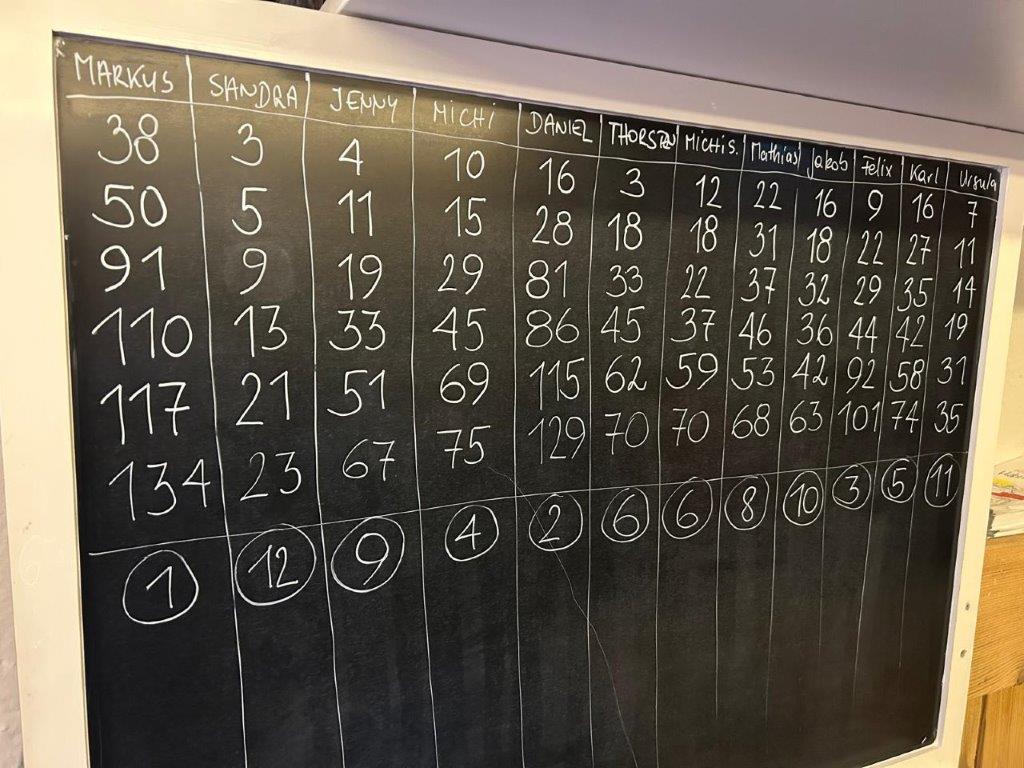 MARKUS SANDRA JENNY MICHI DANIEL THORSTEN MICHIS. Mathias Jakob Felix Karl Ursula
38 3 4 10 16 3 12 22 16 9 16 7
50 5 11 15 28 18 18 31 18 22 27 11
91 9 19 29 81 33 22 37 32 29 35 14
110 13 33 45 86 45 37 46 36 44 42 19
117 21 51 69 115 62 59 53 42 92 58 31
134 23 67 75 129 70 70 68 63 101 74 35
1 12 9 4 2 6 6 8 10 3 5 11